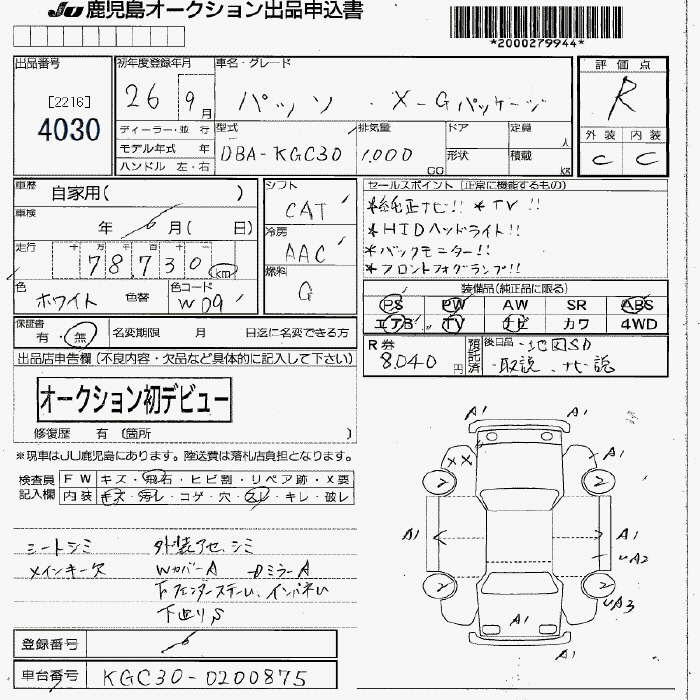 JU 鹿児島オークション出品申込書
*2000279944*
出品番号 初年度登録年月 車名・グレード 評価点
[2216]
4030
26 9月 パッソ・X-Gパッケージ R
ディーラー・並行 型式 排気量 ドア 定員 人 外装 内装
モデル年式 年 DBA-KGC30 1,000 CC 形状 積載 kg C C
ハンドル 左・右
車歴 自家用( ) シフト CAT
車検 年 月( 日) 冷房 AAC
走行 十 万 千 百 十 78,730 km 燃料 G
色 ホワイト 色替 色コード W09
保証書 有・無 名変期限 月 日迄に名変できる方
セールスポイント (正常に機能するもの)
*純正ナビ!! *TV!!
*HIDヘッドライト!!
*バックモニター!!
*フロントフォグランプ!!
装備品(純正品に限る)
PS PW AW SR ABS
エアB TV ナビ カワ 4WD
R券 8,040円 預託済 後日品 ・地図SD
・取説、ナビ説
出品店申告欄 (不良内容・欠品など具体的に記入して下さい)
オークション初デビュー
修復歴 有 (箇所 )
※現車はJU鹿児島にあります。陸送費は落札店負担となります。
検査員記入欄 FW キズ・飛石・ヒビ割・リペア跡・X要
内装 キズ・汚れ・コゲ・穴・スレ・キレ・破レ
シートシミ 外装アセ、シミ
メインキー欠 WカバーA DミラーA
下廻りS
A1 A1
XX A1
2 2
A1 A1
A2
2 2
A3
A1
A1
登録番号
車台番号 KGC30-0200875